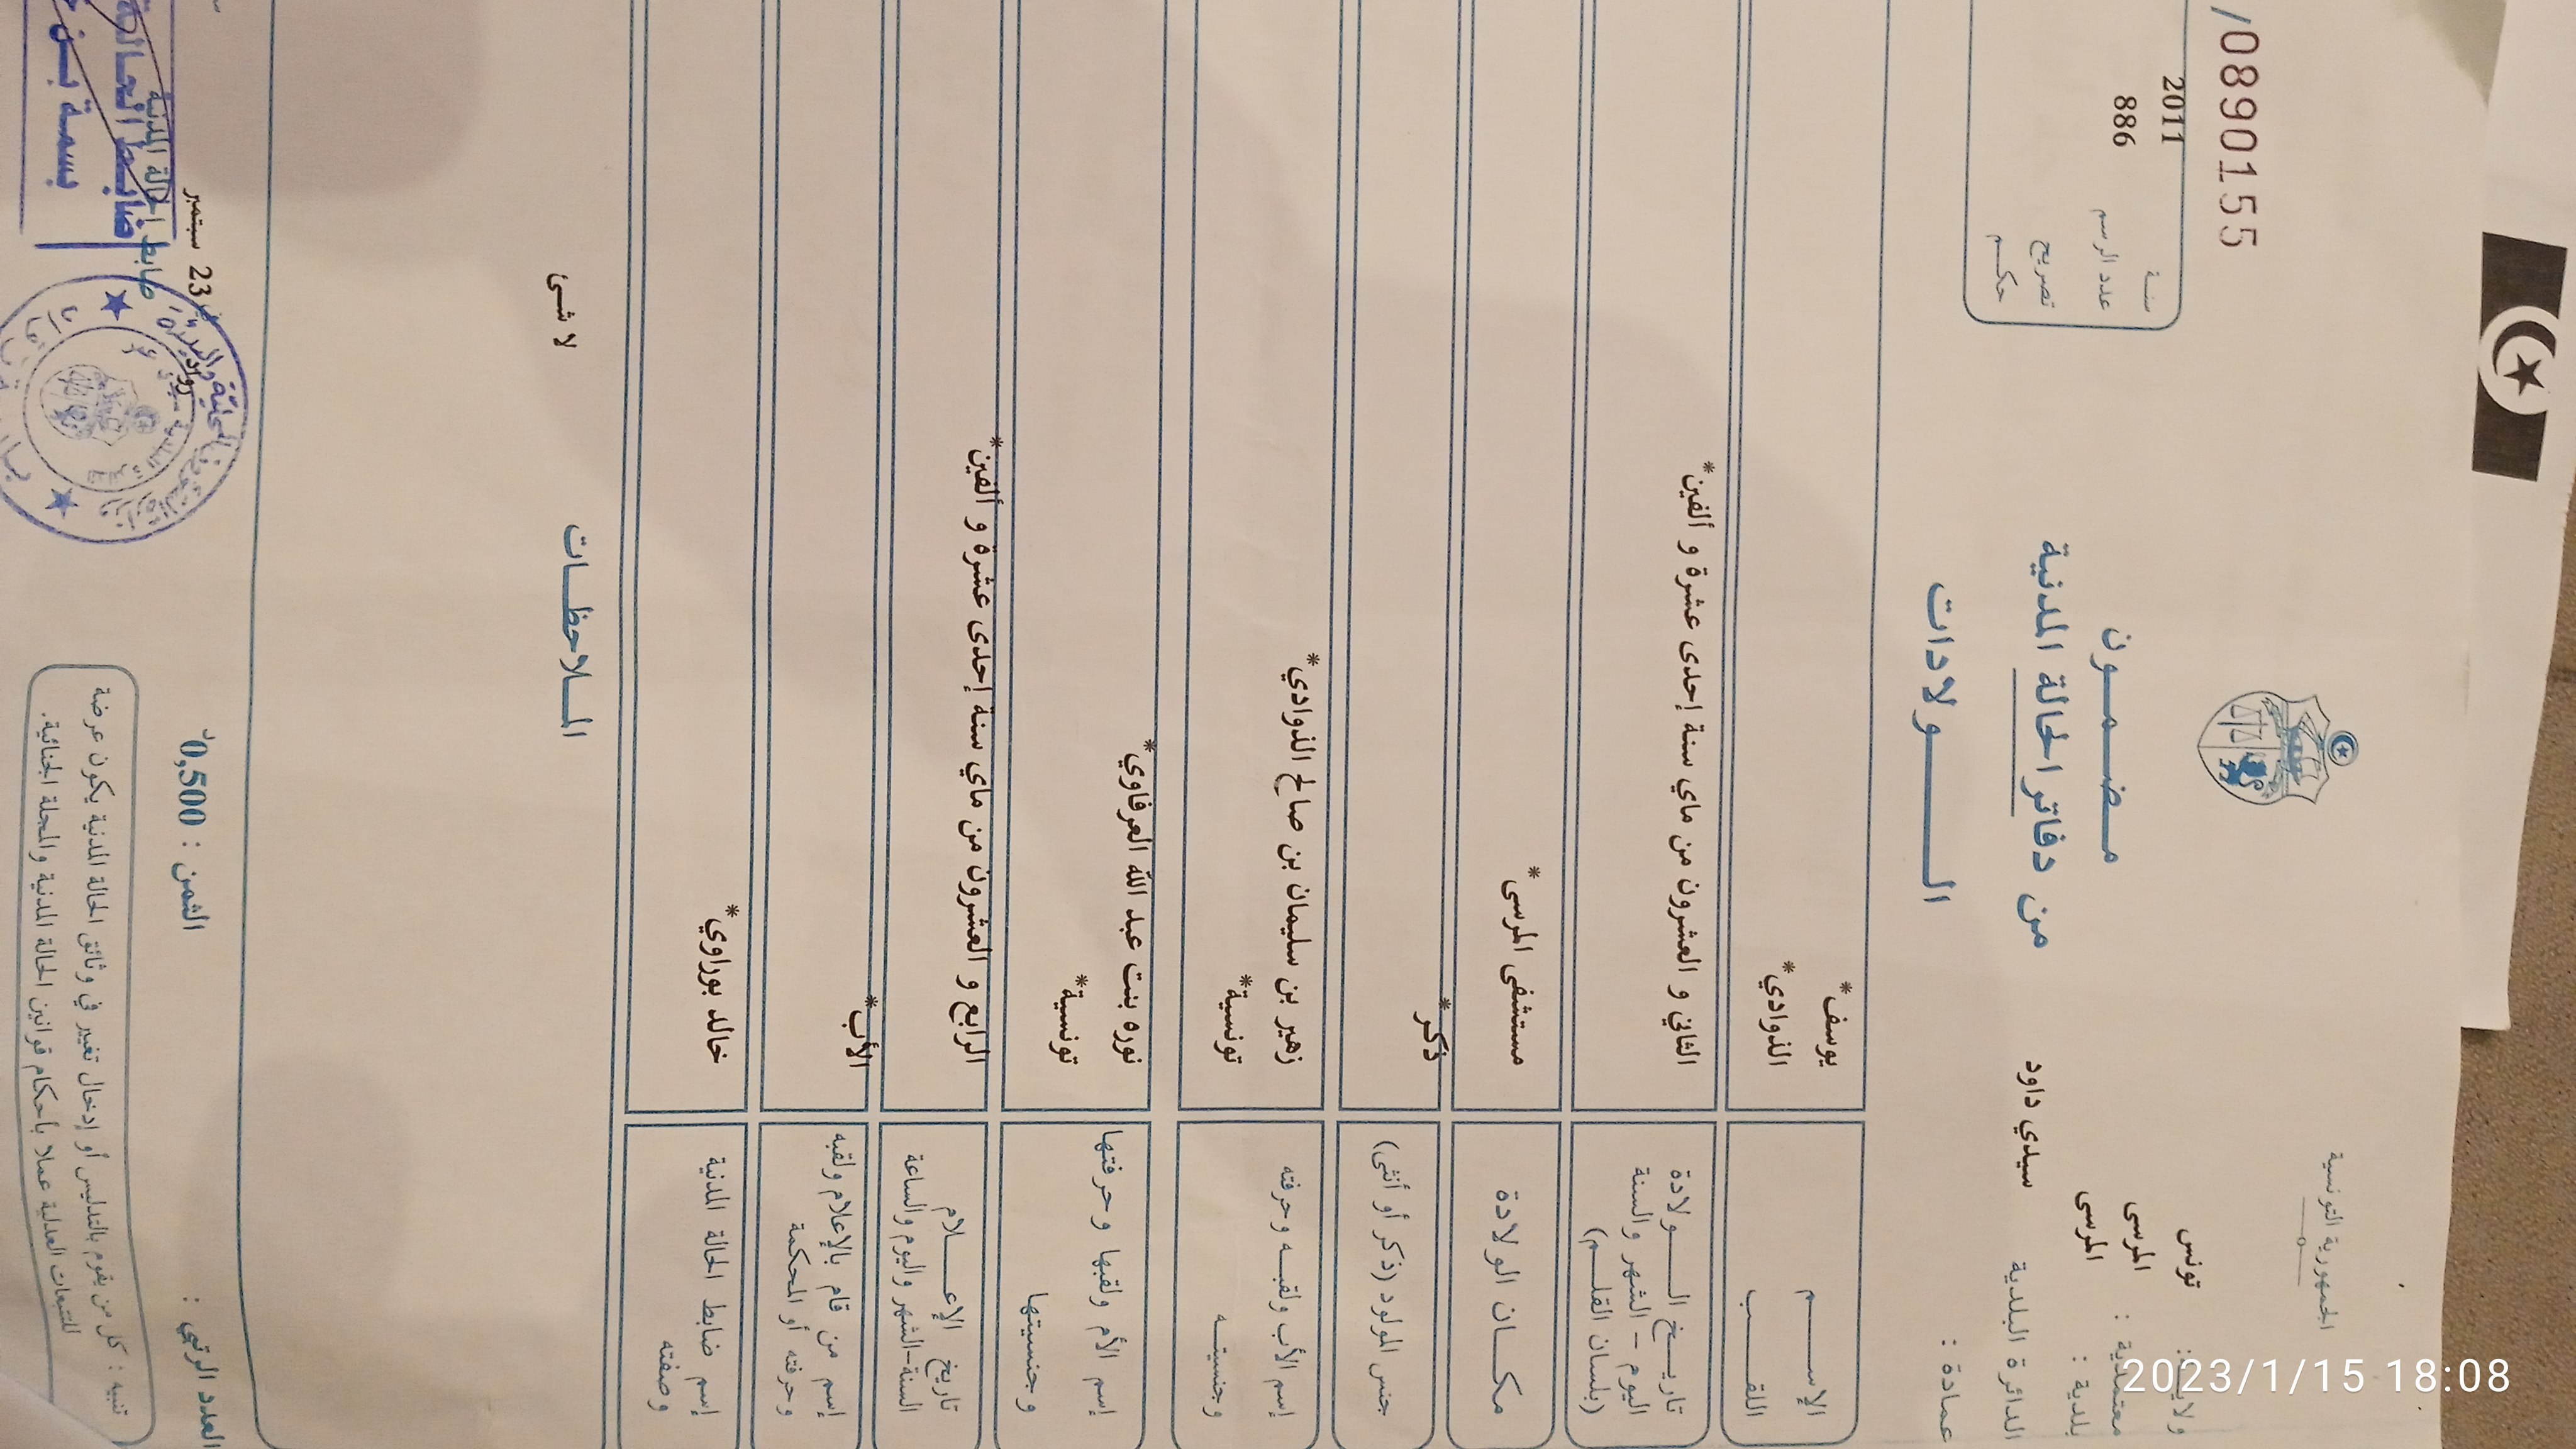 /0890155
الجمهورية التونسية
ولاية : تونس
معتمدية : المرسى
بلدية : المرسى
الدائرة البلدية سيدي داود
عمادة :
مضمون
من دفاتر الحالة المدنية
الولادات
سنة 2011
عدد الرسم 886
تصريح
حكم
الإسم يوسف*
اللقب الذوادي*
تاريخ الولادة
اليوم - الشهر والسنة
(بلسان القلم)
الثاني و العشرون من ماي سنة إحدى عشرة و ألفين*
مكان الولادة مستشفى المرسى*
جنس المولود (ذكر أو أنثى) ذكر*
إسم الأب ولقبه وحرفته زهير بن سليمان بن صالح الذوادي*
وجنسيته تونسية*
إسم الأم ولقبها وحرفتها نوره بنت عبد الله العرفاوي*
وجنسيتها تونسية*
تاريخ الإعلام
السنة-الشهر واليوم والساعة
الرابع و العشرون من ماي سنة إحدى عشرة و ألفين*
إسم من قام بالإعلام ولقبه
وحرفته أو المحكمة
الأب*
إسم ضابط الحالة المدنية
وصفته
خالد بوراوي*
الملاحظات
لا شئ
العدد الرتبي :
الثمن : 0,500د
23 سبتمبر
رواد
ضابط الحالة المدنية
ضابط الحالة
بسمة بن
تنبيه : كل من يقوم بالتدليس أو إدخال تغيير في وثائق الحالة المدنية يكون عرضة
للتتبعات العدلية عملا بأحكام قوانين الحالة المدنية والمجلة الجنائية.
2023/1/15 18:08